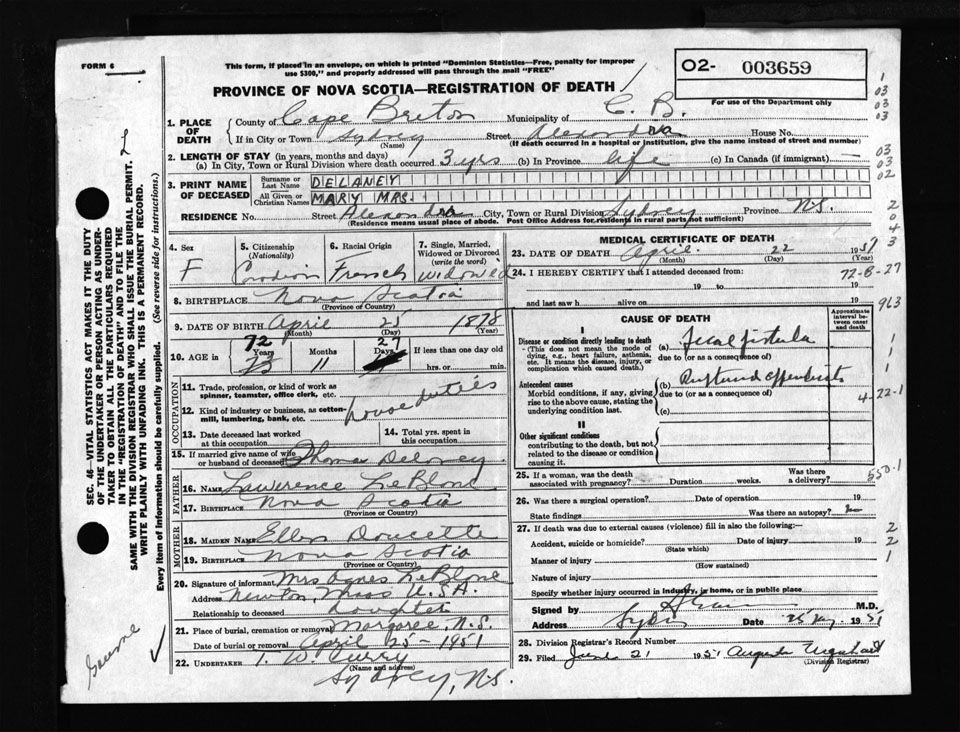 FORM 6
This form, if placed in an envelope, on which is printed "Dominion Statistics—Free, penalty for improper
use $300," and properly addressed will pass through the mail "FREE"
PROVINCE OF NOVA SCOTIA—REGISTRATION OF DEATH
O2- 003659
For use of the Department only
1. PLACE OF DEATH
County of Cape Breton Municipality of C. B.
If in City or Town Sydney Street Alexandra House No.
(Name) (If death occurred in a hospital or institution, give the name instead of street and number)
2. LENGTH OF STAY (in years, months and days)
(a) In City, Town or Rural Division where death occurred 3 yrs (b) In Province life (c) In Canada (if immigrant) —
3. PRINT NAME OF DECEASED
Surname or Last Name DELANEY
All Given or Christian Names MARY MRS.
RESIDENCE No. Street Alexandra City, Town or Rural Division Sydney Province N.S.
(Residence means usual place of abode. Post Office Address for residents in rural parts not sufficient)
4. Sex F
5. Citizenship (Nationality) Canadian
6. Racial Origin French
7. Single, Married, Widowed or Divorced (write the word) widowed
8. BIRTHPLACE Nova Scotia
(Province or Country)
9. DATE OF BIRTH April 25 1878
(Month) (Day) (Year)
10. AGE in 72 Years 11 Months 27 Days If less than one day old
hrs. or min.
OCCUPATION
11. Trade, profession, or kind of work as spinner, teamster, office clerk, etc. house duties
12. Kind of industry or business, as cotton-mill, lumbering, bank, etc.
13. Date deceased last worked at this occupation
14. Total yrs. spent in this occupation
15. If married give name of wife or husband of deceased Thomas Delaney
FATHER
16. NAME Lawrence LeBlanc
17. BIRTHPLACE Nova Scotia
(Province or Country)
MOTHER
18. MAIDEN NAME Ellen Doucette
19. BIRTHPLACE Nova Scotia
(Province or Country)
20. Signature of informant Mrs Agnes LeBlanc
Address Newton, Mass U.S.A.
Relationship to deceased daughter
21. Place of burial, cremation or removal Margaree, N.S.
Date of burial or removal April 25 - 1951
22. UNDERTAKER T. W. Curry
(Name and address)
Sydney, N.S.
MEDICAL CERTIFICATE OF DEATH
23. DATE OF DEATH April 22 1951
(Month) (Day) (Year)
24. I HEREBY CERTIFY that I attended deceased from:
19 to 19
and last saw h alive on 19
CAUSE OF DEATH
Approximate interval between onset and death
I
Disease or condition directly leading to death
(—This does not mean the mode of dying, e.g., heart failure, asthenia, etc. It means the disease, injury, or complication which caused death.)
(a) Fecal fistula
due to (or as a consequence of)
Antecedent causes
Morbid conditions, if any, giving rise to the above cause, stating the underlying condition last.
(b) Ruptured appendicitis
due to (or as a consequence of)
(c)
II
Other significant conditions
contributing to the death, but not related to the disease or condition causing it.
25. If a woman, was the death associated with pregnancy? Duration weeks. Was there a delivery?
26. Was there a surgical operation? Date of operation 19
State findings Was there an autopsy? no
27. If death was due to external causes (violence) fill in also the following:—
Accident, suicide or homicide? Date of injury 19
(State which)
Manner of injury
(How sustained)
Nature of injury
Specify whether injury occurred in Industry, in home, or in public place
Signed by M.D.
Address Sydney Date 25 1951
28. Division Registrar's Record Number
29. Filed June 21 1951 Augusta Urquhart
(Division Registrar)
SEC. 46—VITAL STATISTICS ACT MAKES IT THE DUTY
OF THE UNDERTAKER OR PERSON ACTING AS UNDER-
TAKER TO OBTAIN ALL THE PARTICULARS REQUIRED
IN THE "REGISTRATION OF DEATH" AND TO FILE THE
SAME WITH THE DIVISION REGISTRAR WHO SHALL ISSUE THE BURIAL PERMIT.
WRITE PLAINLY WITH UNFADING INK. THIS IS A PERMANENT RECORD.
Every item of information should be carefully supplied. (See reverse side for instructions.)
1
03
03
03
03
03
02
2
0
4
3
72-8-27
963
1
1
1
4-22-1
550.1
2
2
1